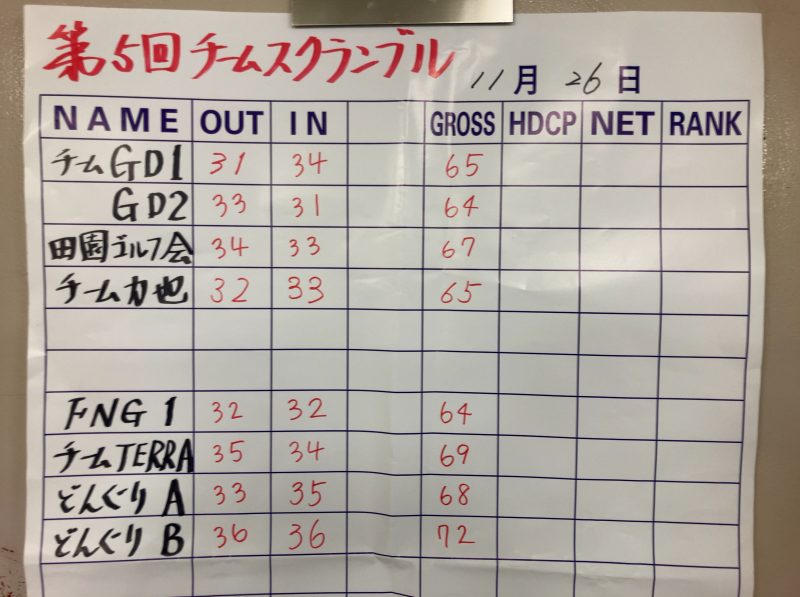 第5回チームスクランブル 11月26日
NAME OUT IN GROSS HDCP NET RANK
チームGD1 31 34 65
GD2 33 31 64
田園ゴルフ会 34 33 67
チーム力也 32 33 65
FNG 1 32 32 64
チームTERRA 35 34 69
どんぐり A 33 35 68
どんぐり B 36 36 72